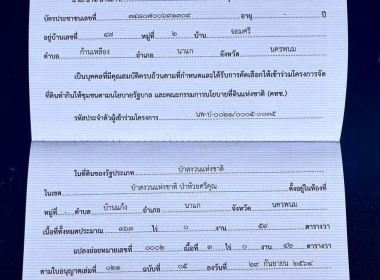 บัตรประชาชนเลขที่ ๓๔๘๐๗๐๐๖๙๑๓๐๙ อายุ - ปี
อยู่บ้านเลขที่ ๔๗ หมู่ที่ ๒ บ้าน จอมศรี
ตำบล ก้านเหลือง อำเภอ นาแก จังหวัด นครพนม
เป็นบุคคลที่มีคุณสมบัติครบถ้วนตามที่กำหนดและได้รับการคัดเลือกให้เข้าร่วมโครงการจัด
ที่ดินทำกินให้ชุมชนตามนโยบายรัฐบาล และคณะกรรมการนโยบายที่ดินแห่งชาติ (คทช.)
รหัสประจำตัวผู้เข้าร่วมโครงการ นพ-ป-๐๐๒๑/๐๐๐๕-๐๐๓๕
ในที่ดินของรัฐประเภท ป่าสงวนแห่งชาติ
ในเขต ป่าสงวนแห่งชาติ ป่าห้วยศรีคุณ ตั้งอยู่ในท้องที่
หมู่ที่ - ตำบล บ้านแก้ง อำเภอ นาแก จังหวัด นครพนม
เนื้อที่ทั้งหมดประมาณ ไร่ ๐ งาน ๕๙ ตารางวา
แปลงย่อยหมายเลขที่ ๐๐๐๒ เนื้อที่ ๓ ไร่ ๐ งาน ตารางวา
ตามใบอนุญาตเล่มที่ ๐๒๑ ฉบับที่ ๐๕ ลงวันที่ ๒๙ กันยายน ๒๕๖๔